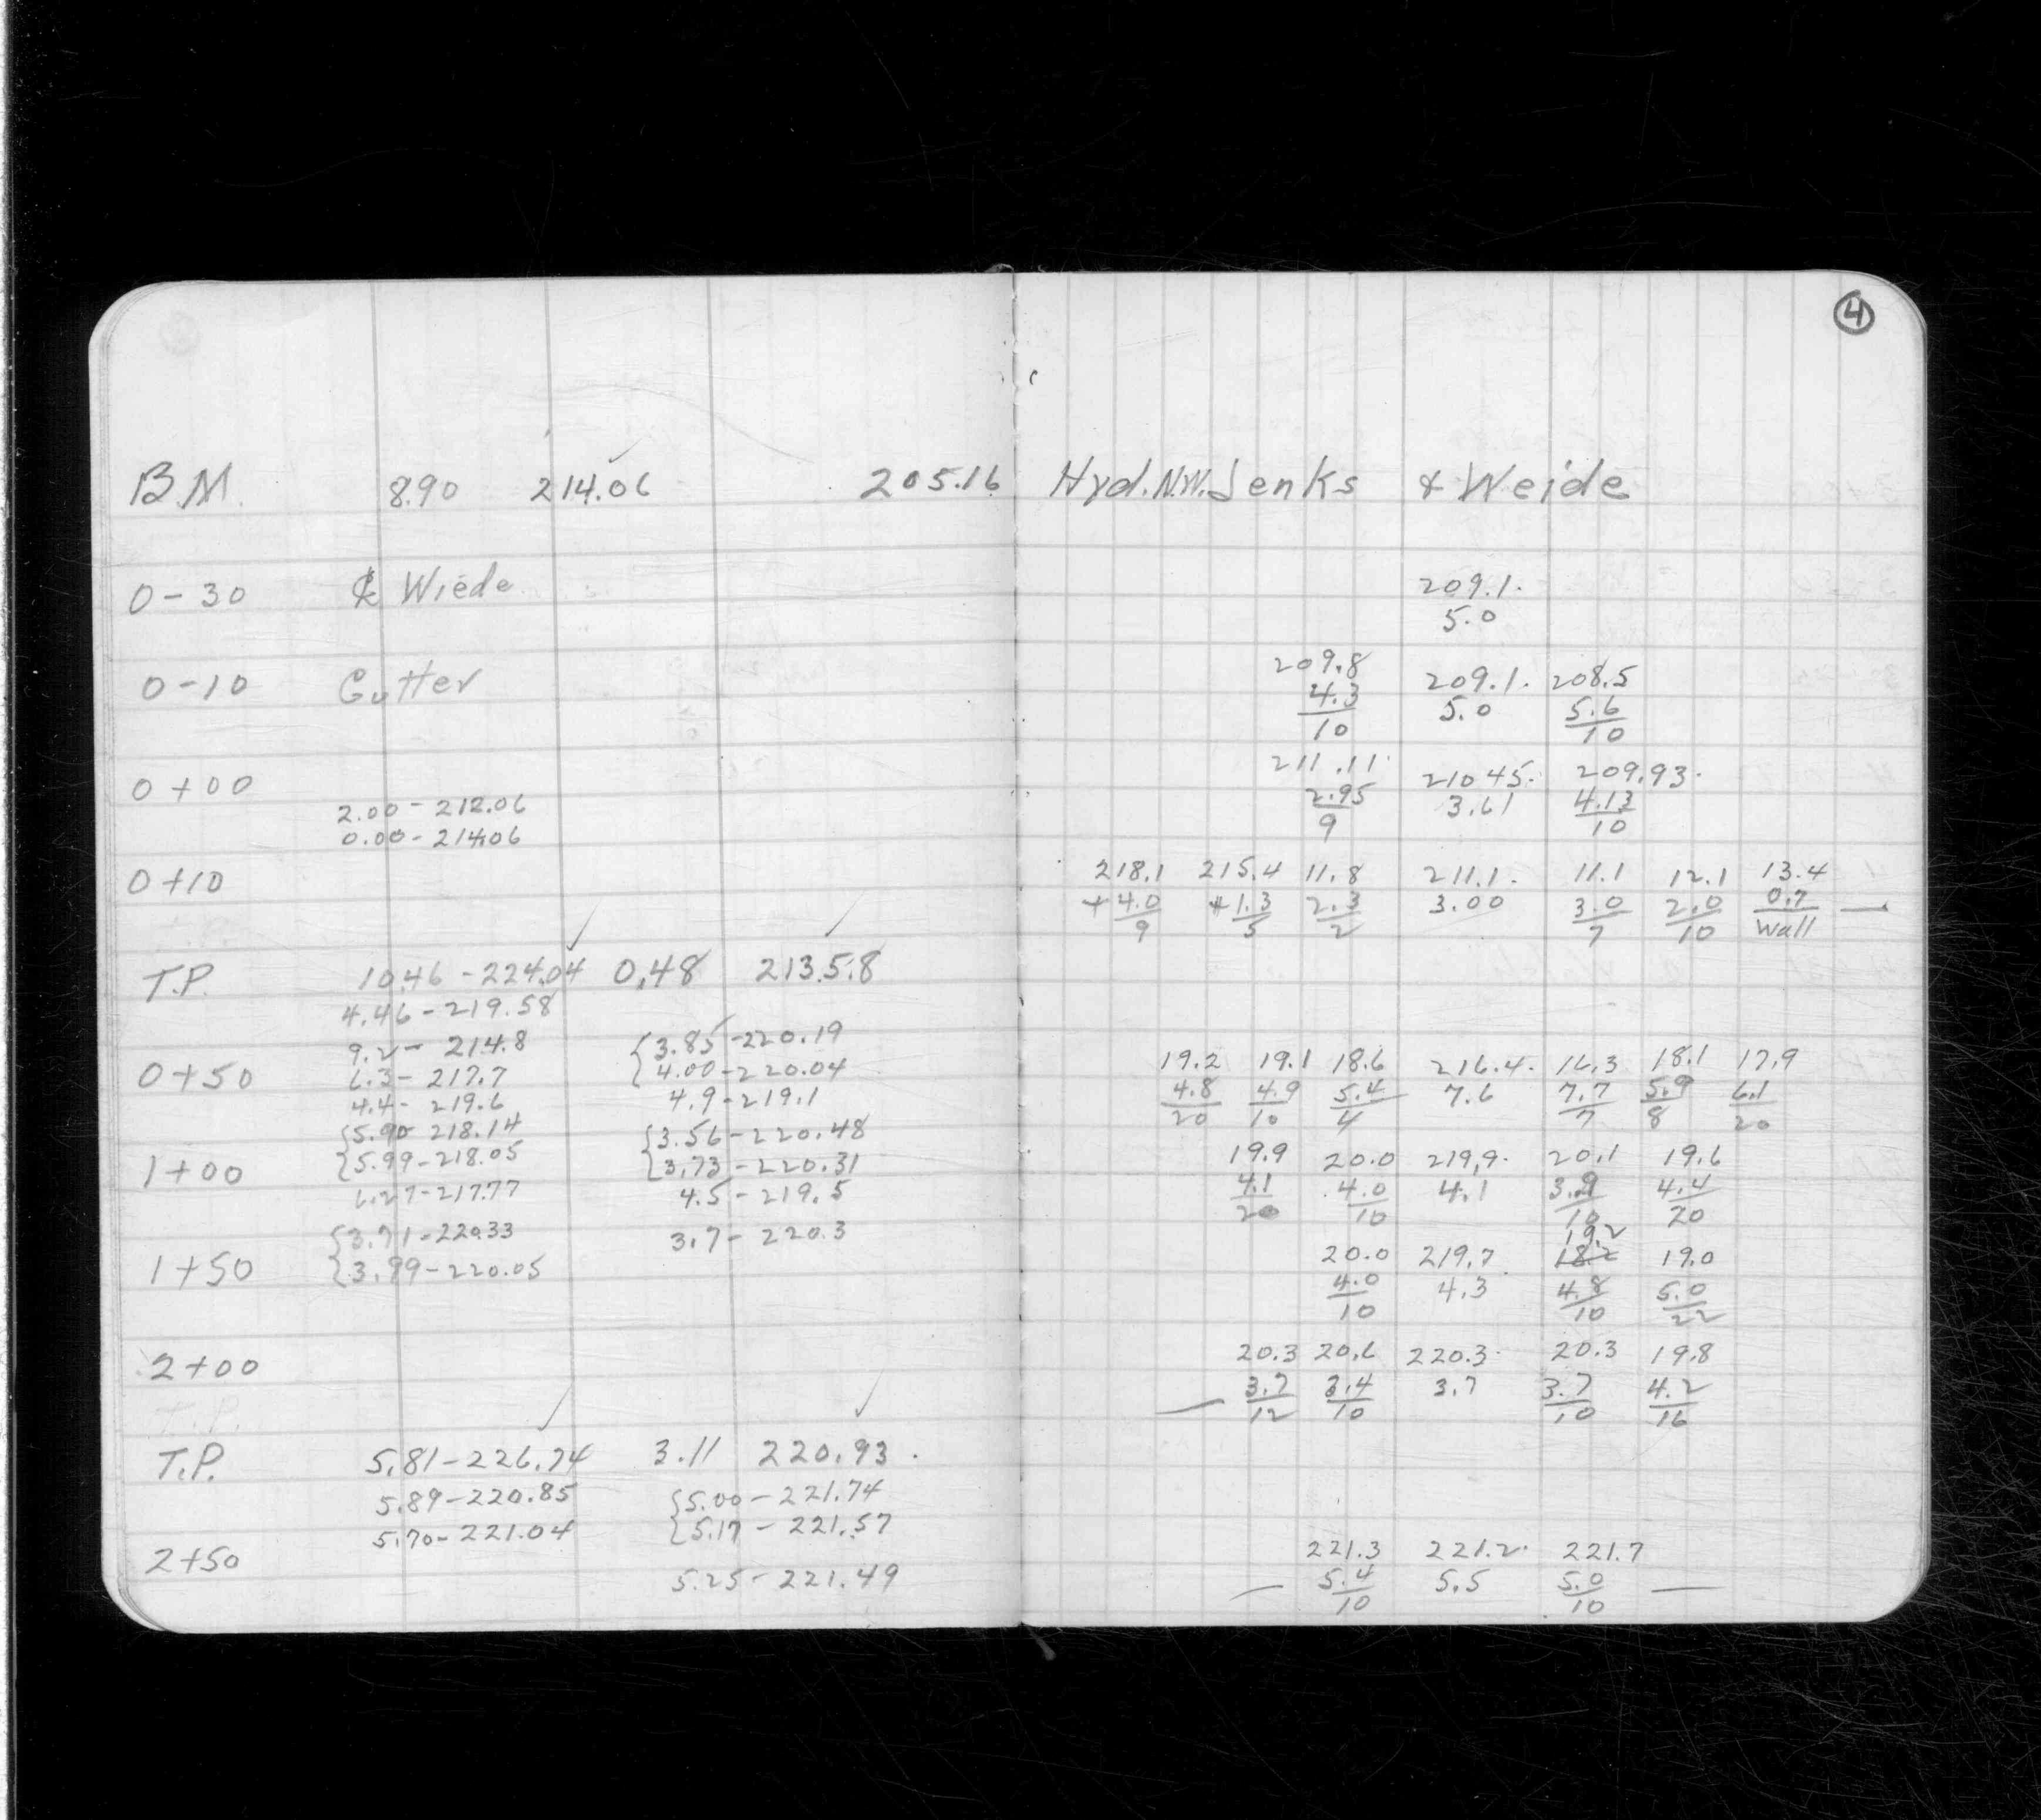 ④
B.M. 8.90 214.06 205.16 Hyd. N.W. Jenks & Weide
209.1.
0-30 ℄ Wiede 5.0
209.8 209.1. 208.5
0-10 Gutter 4.3 5.0 5.6
10 10
211.11 210 45. 209.93.
0+00 2.95 3.61 4.13
2.00 - 212.06 9 10
0.00 - 214.06
218.1 215.4 11.8 211.1. 11.1 12.1 13.4
0+10 +4.0 +1.3 2.3 3.00 3.0 2.0 0.7 —
9 5 2 7 10 Wall
T.P. 10.46 - 224.04 0.48 213.58
4.46 - 219.58
9.2 - 214.8 {3.85 - 220.19
19.2 19.1 18.6 216.4. 16.3 18.1 17.9
0+50 6.3 - 217.7 {4.00 - 220.04 4.8 4.9 5.4 7.6 7.7 5.9 6.1
4.4 - 219.6 4.9 - 219.1 20 10 4 7 8 20
{5.90 - 218.14 {3.56 - 220.48
19.9 20.0 219.9. 20.1 19.6
1+00 {5.99 - 218.05 {3.73 - 220.31 4.1 4.0 4.1 3.9 4.4
6.27 - 217.77 4.5 - 219.5 20 10 10 20
{3.71 - 220.33 3.7 - 220.3 19.2
20.0 219.7 18.2 19.0
1+50 {3.99 - 220.05 4.0 4.3 4.8 5.0
10 10 22
20.3 20.6 220.3. 20.3 19.8
2+00 — 3.7 3.4 3.7 3.7 4.2
12 10 10 16
T.P.
T.P. 5.81 - 226.74 3.11 220.93.
5.89 - 220.85 {5.00 - 221.74
5.70 - 221.04 {5.17 - 221.57
221.3 221.2. 221.7
2+50 5.25 - 221.49 — 5.4 5.5 5.0 —
10 10